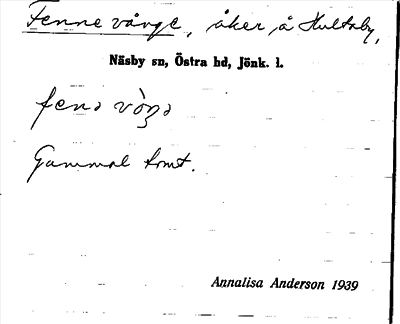 Fenne vånge, åker å Hultsby,
Näsby sn, Östra hd, Jönk. l.
fenə vòŋə
Gammal tomt.
Annalisa Anderson 1939